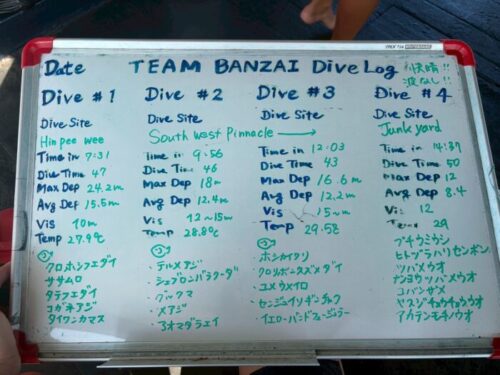 Date TEAM BANZAI Dive Log 快晴!!
波なし!!
Dive #1
Dive Site
Hin pee wee
Time in 7:31
Dive Time 47
Max Dep 24.2m
Avg Dep 15.5m
Vis 10m
Temp 27.9℃
クロホシフエダイ
ササムロ
タテフエダイ
コガネアジ
タイワンカマス
Dive #2
Dive Site
South west Pinnacle →
Time in 9:56
Dive Time 46
Max Dep 18m
Avg Dep 12.4m
Vis 12~15m
Temp 28.8℃
・テルメアジ
・シェブロンバラクーダ
・グルクマ
・メアジ
・アオマダラエイ
Dive #3
Dive Site
Time in 12:03
Dive Time 43
Max Dep 16.6m
Avg Dep 12.2m
Vis 15m
Temp 29.58
・ホシカイワリ
・ユメウメイロ
・センジュイソギンチャク
・イエローバンドフュージラー
Dive #4
Dive Site
Junk yard
Time in 14:37
Dive Time 50
Max Dep 12
Avg Dep 8.4
Vis 12
Temp 29
ブチウミウシ
ヒトヅラハリセンボン
ツバメウオ
ナンヨウツバメウオ
コバンザメ
ヤスジチョウチョウウオ
アカテンモチノウオ